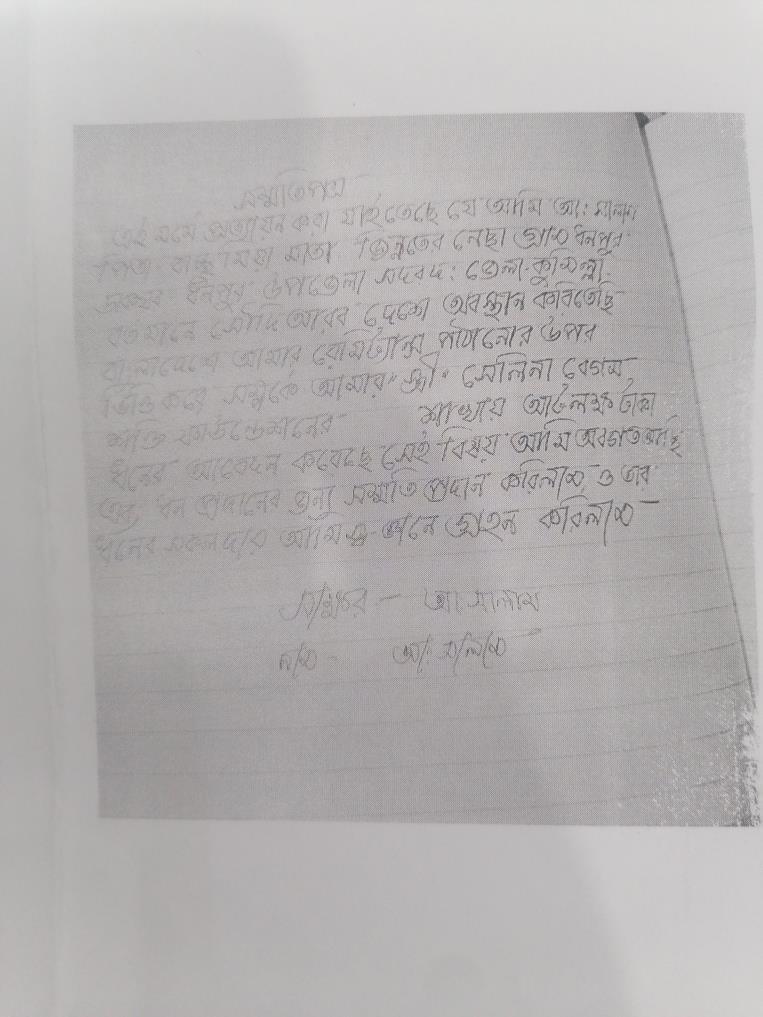 সম্মতিপত্র
এই মর্মে প্রত্যায়ন করা যাইতেছে যে আমি আ: সালাম
পিতা মিয়া মাতা জিন্নতের নেছা গ্রাম ধনপুর
ধনপুর উপজেলা সদর জেলা কুমিল্লা
বর্তমানে সৌদি আরব দেশে অবস্থান করিতেছি
বাংলাদেশে আমার রেমিট্যান্স পাঠানোর উপর
ভিত্তি করে সম্পর্কে আমার স্ত্রী সেলিনা বেগম
শক্তি ফাউন্ডেশনের শাখায় আটলক্ষ টাকা
ঋনের আবেদন করেছে সেই বিষয় আমি অবগত আছি
এবং ঋন প্রদানের জন্য সম্মতি প্রদান করিলাম ও তার
ঋনের সকল দায় আমি গ্রহন করিলাম
সাক্ষর - আ সালাম
নাম - আ: সালাম